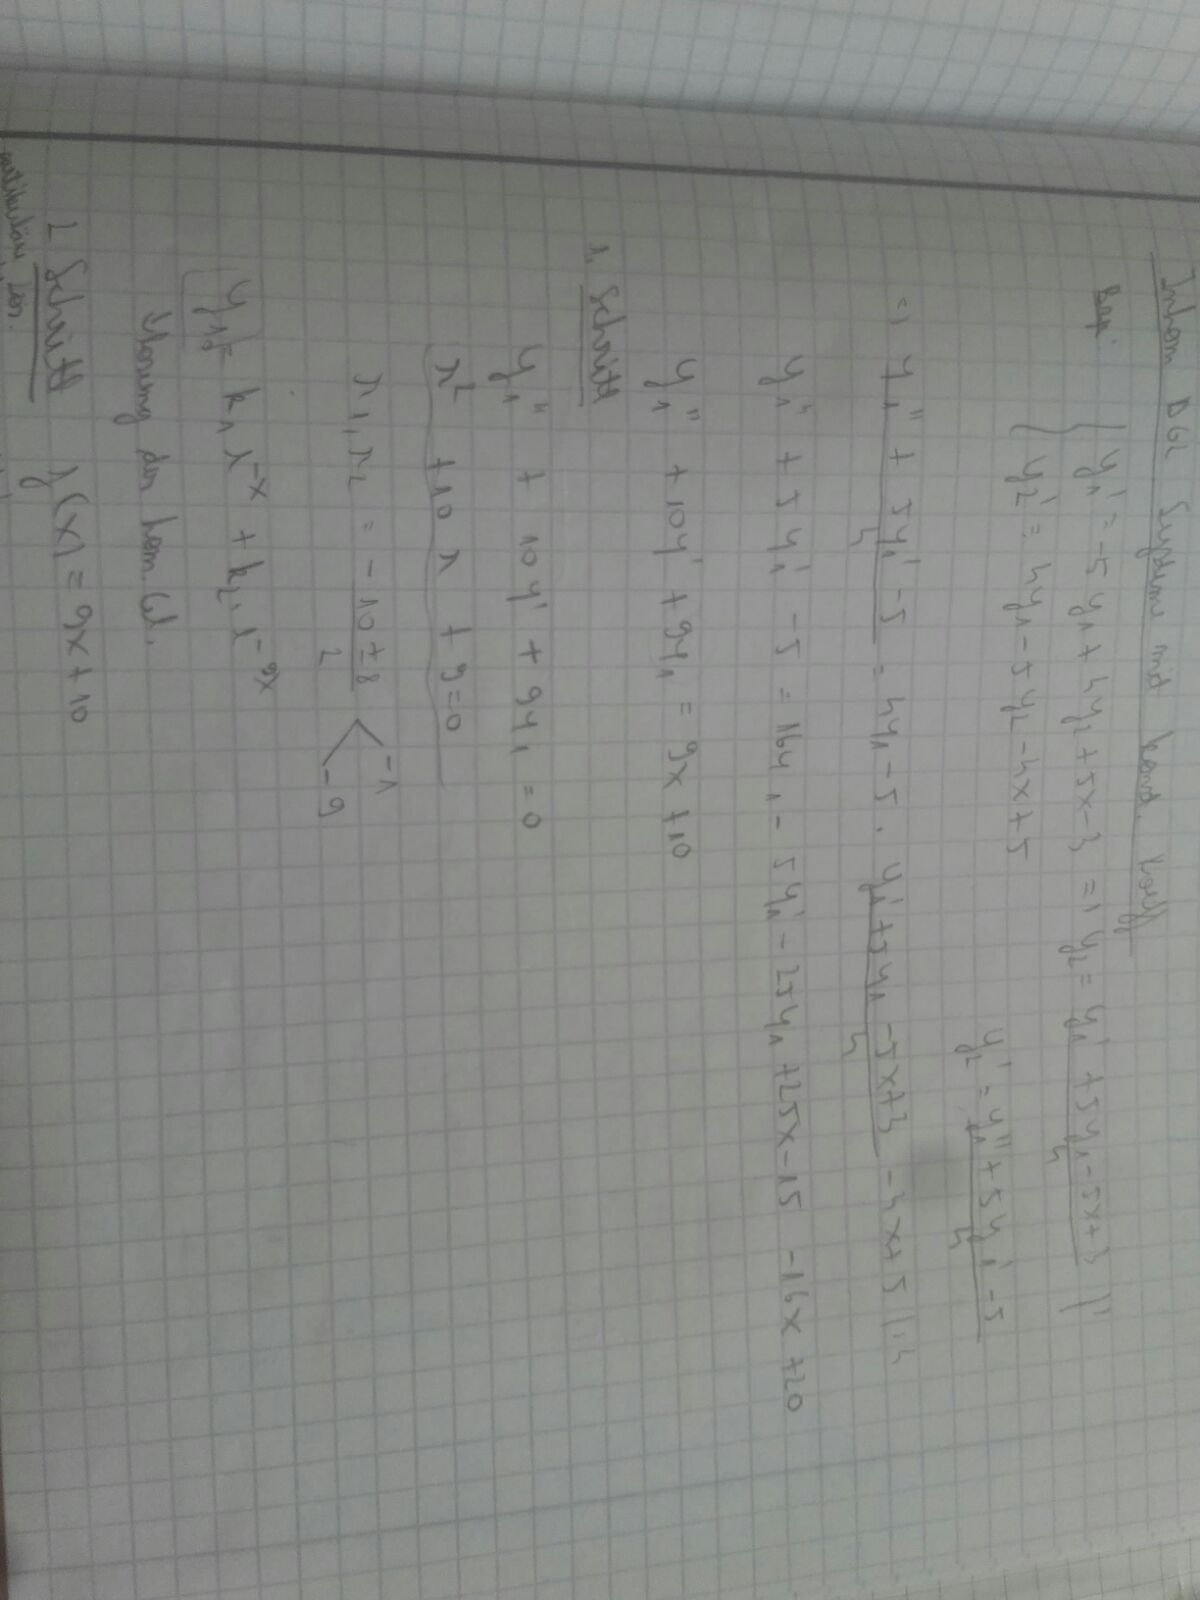 Inhom DGL Systeme mit konst. Koeff
Bsp: y₁' = -5y₁ + 4y₂ + 5x - 3 => y₂ = (y₁' + 5y₁ - 5x + 3)/4 |'
y₂' = 4y₁ - 5y₂ - 4x + 5
y₂' = (y₁'' + 5y₁' - 5)/4
=> (y₁'' + 5y₁' - 5)/4 = 4y₁ - 5 · (y₁' + 5y₁ - 5x + 3)/4 - 4x + 5 |·4
y₁'' + 5y₁' - 5 = 16y₁ - 5y₁' - 25y₁ + 25x - 15 - 16x + 20
y₁'' + 10y' + 9y₁ = 9x + 10
1. Schritt
y₁'' + 10y' + 9y₁ = 0
λ² + 10λ + 9 = 0
λ₁, λ₂ = (-10 ± 8)/2 < -1
-9
y₁ = k₁ e^-x + k₂ · e^-9x
Lösung der hom. Gl.
2 Schritt f(x) = 9x + 10
partikuläre Lös.